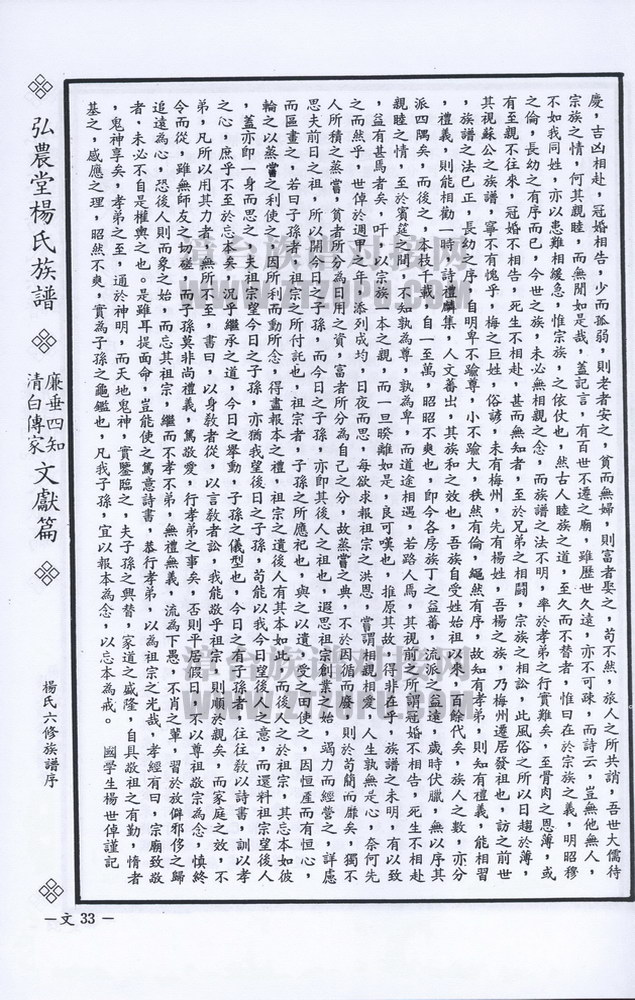 慶，吉凶相赴，冠婚相告，少而孤弱，則老者安之，貧而無婦，則富者娶之，苟不然，旅人之所共誚，吾世大儒待
宗族之情，何其親睦，而無間如是哉，蓋記言，有百世不遷之廟，雖歷世久遠，亦不可疎，而詩云，豈無他無人，
不如我同姓，亦以患難相緩急，惟宗族，之依仗也，然古人睦族之道，至久而不替者，惟曰在於宗族之義，明昭穆
之倫，長幼之有序而已，今世之族，未必無相親之念，而族譜之法不明，率於孝弟之行實難矣，至骨肉之恩薄，或
有至親不往來，冠婚不相告，死生不相赴，甚而無知者，至於兄弟之相鬪，宗族之相訟，此風俗之所以日趨於薄，
其視蘇公之族譜，寧不有愧乎，梅之巨姓，俗諺，未有梅州，先有楊姓，吾楊之族，乃梅州遷居發祖也，訪之前世
，族譜之法已正，長幼之序，自明卑不踰尊，小不踰大，秩然有倫，繩然有序，故知有孝弟，則知有禮義，能相習
，禮義，則能相勸一時，詩禮麟集，人文蕃出，其族和之效也，吾族自受姓始祖以來，百餘代矣，族人之數，亦分
派四隅矣，而後之，本枝千載，自一至萬，昭昭不爽也，即今各房族丁之益善，流派之益遠，歲時伏臘，無以序其
親睦之情，至於賓筵之間，不知孰為尊，孰為卑，而道途相遇，若路人焉，其視前之所謂冠婚不相告，死生不相赴
，益有甚焉者矣，吁，以宗族一本之親，而一旦睽離如是，良可嘆也，推原其故，得非在乎，族譜之未明，有以致
之而然乎，世倬於週甲之年，添列成均，日夜而思，每欲求報祖宗之洪恩，嘗謂相親相愛，人生孰無是心，奈何先
人所積之蒸嘗，貧者所分為日用之資，富者所分為自己之分，故蒸嘗之典，不於因循而廢，則於苟簡而靡矣，獨不
思夫前日之祖，所以開今日之子孫，而今日之子孫，亦即其後人之祖也，遐思祖宗創業之始，竭力而經營之，詳慮
而區畫之，若曰子孫者，祖宗之所付託也，祖宗者，子孫之所應祀也，與之以遺，受之田使之，因恒產而有恒心，
輪之以蒸嘗之利使之，因所利而動所念，得盡報本之禮，祖宗之遺後人有其本如此，而後之於祖宗，其忘本如彼
，蓋亦即一身而思之，夫祖宗望今日之子孫，亦猶我望後日之子孫，苟能以我今日望後人之意，而還料祖宗望後人
之心，庶乎不至於忘本矣，況乎繼承之道，今日之舉動，子孫之儀型也，今日之有子孫者，往往教以詩書，訓以孝
弟，凡所以用其力者，無所不至，書曰，以身教者從，以言教者訟，我能敬乎祖宗，則順於親矣，而家庭之效，不
令而從，雖無師友之切磋，而子孫莫非尚禮義，篤敬愛，行孝弟之事矣，否則平居假日，不以尊祖敬宗為念，慎終
追遠為心，恐後人則而象之始，而忘其祖宗，繼而不孝不弟，無禮無義，流為下愚，不肖之輩，習於放僻邪侈之歸
者，未必不自是權輿之也。是雖耳提面命，豈能使之篤意詩書，恭行孝弟，以為祖宗之光哉，孝經有曰，宗廟致敬
，鬼神享矣，孝弟之至，通於神明，而天地鬼神，實鑒臨之，夫子孫之興替，家道之盛隆，自具敬祖之有勤，惰者
基之，感應之理，昭然不爽，實為子孫之龜鑑也，凡我子孫，宜以報本為念，以忘本為戒。 國學生楊世倬謹記
弘農堂楊氏族譜
廉垂四知
清白傳家
文獻篇
楊氏六修族譜序
—文 33 —
漳台族谱对接网
漳台族谱对接网